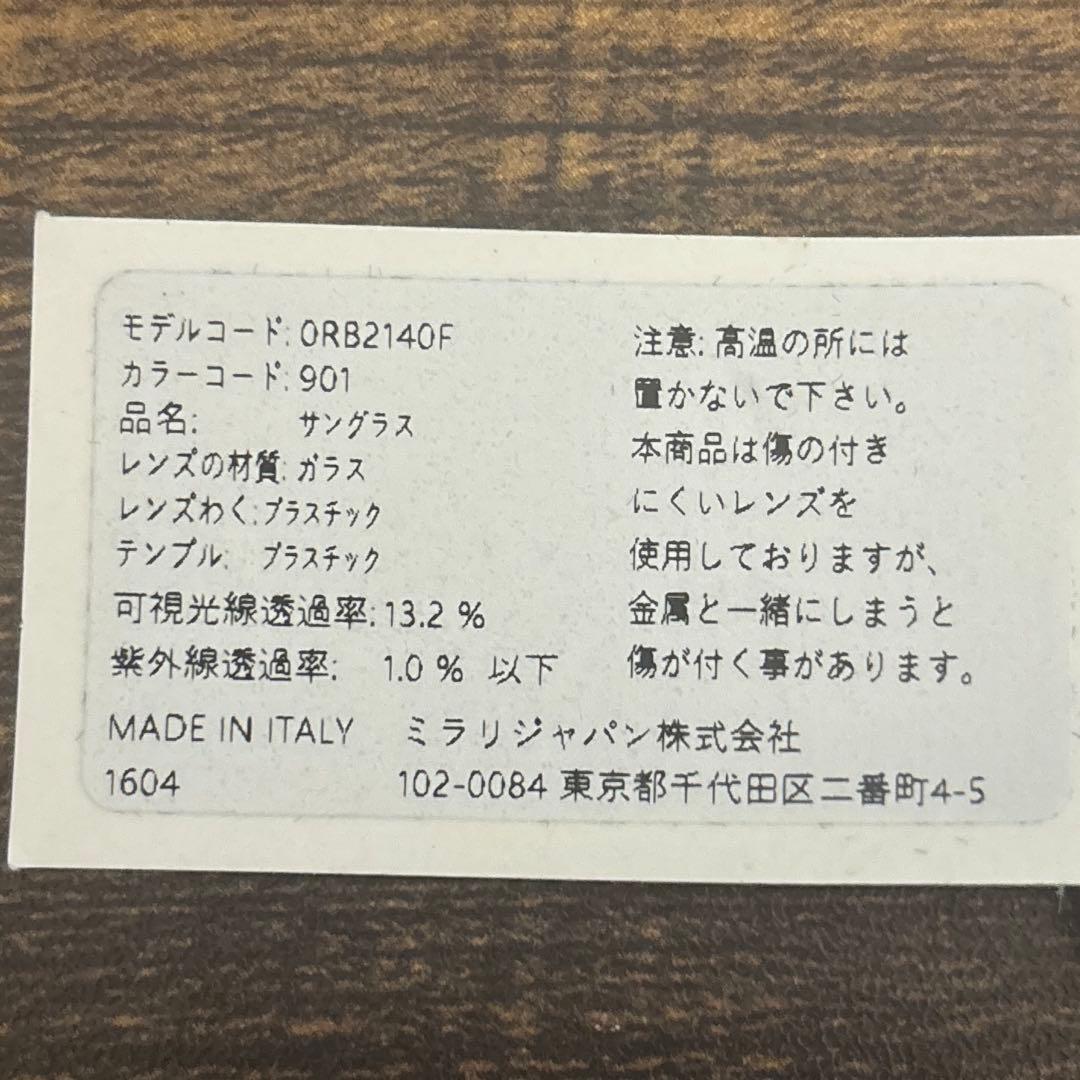 モデルコード: 0RB2140F
カラーコード: 901
品名: サングラス
レンズの材質: ガラス
レンズわく: プラスチック
テンプル: プラスチック
可視光線透過率: 13.2 %
紫外線透過率: 1.0 % 以下
注意: 高温の所には
置かないで下さい。
本商品は傷の付き
にくいレンズを
使用しておりますが、
金属と一緒にしまうと
傷が付く事があります。
MADE IN ITALY ミラリジャパン株式会社
1604 102-0084 東京都千代田区二番町4-5